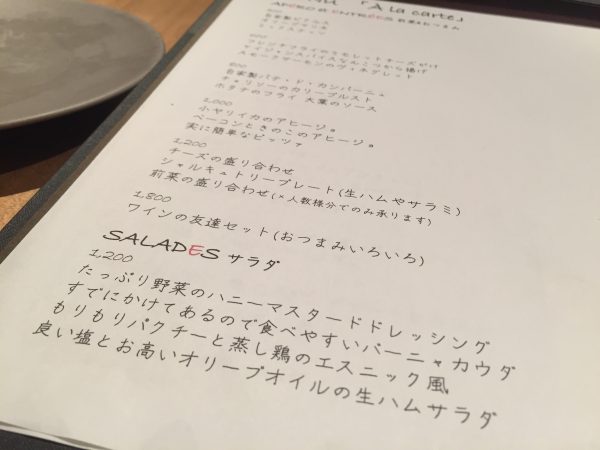 「À la carte」
APÉRO & ENTRÉES 前菜&おつまみ
自家製ピクルス
600
フレンチフライのラミレットチーズがけ
ケイジャンスパイスなんこつから揚げ
スモークサーモンのヴィネグレット
800
自家製パテ・ド・カンパーニュ
チョリソーのカリーブルスト
ホタテのフライ 大葉のソース
1,000
小ヤリイカのアヒージョ。
ベーコンときのこのアヒージョ。
実に簡単なピッツァ
1,200
チーズの盛り合わせ
シャルキュトリープレート(生ハムやサラミ)
前菜の盛り合わせ(×人数様分でのみ承ります)
1,800
ワインの友達セット(おつまみいろいろ)
SALADES サラダ
1,200
たっぷり野菜のハニーマスタードドレッシング
すでにかけてあるので食べやすいバーニャカウダ
もりもりパクチーと蒸し鶏のエスニック風
良い塩とお高いオリーブオイルの生ハムサラダ